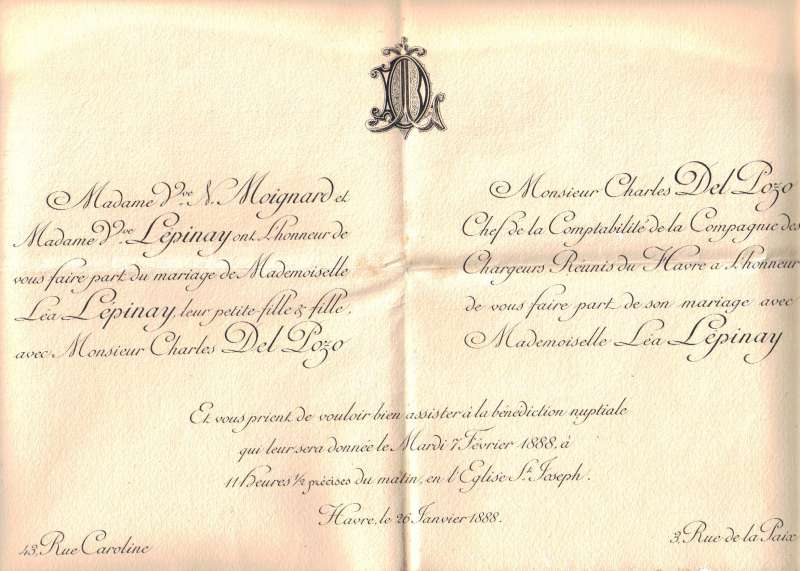 Madame Vve. N. Moignard et
Madame Vve. Lepinay ont l'honneur de
vous faire part du mariage de Mademoiselle
Léa Lepinay leur petite-fille & fille,
avec Monsieur Charles Del Pozo
Monsieur Charles Del Pozo
Chef de la Comptabilité de la Compagnie des
Chargeurs Réunis du Havre a l'honneur
de vous faire part de son mariage avec
Mademoiselle Léa Lepinay
Et vous prient de vouloir bien assister à la bénédiction nuptiale
qui leur sera donnée le Mardi 7 Février 1888, à
11 heures 1/2 précises du matin, en l'Eglise St. Joseph.
Havre, le 26 Janvier 1888.
43, Rue Caroline
3, Rue de la Paix